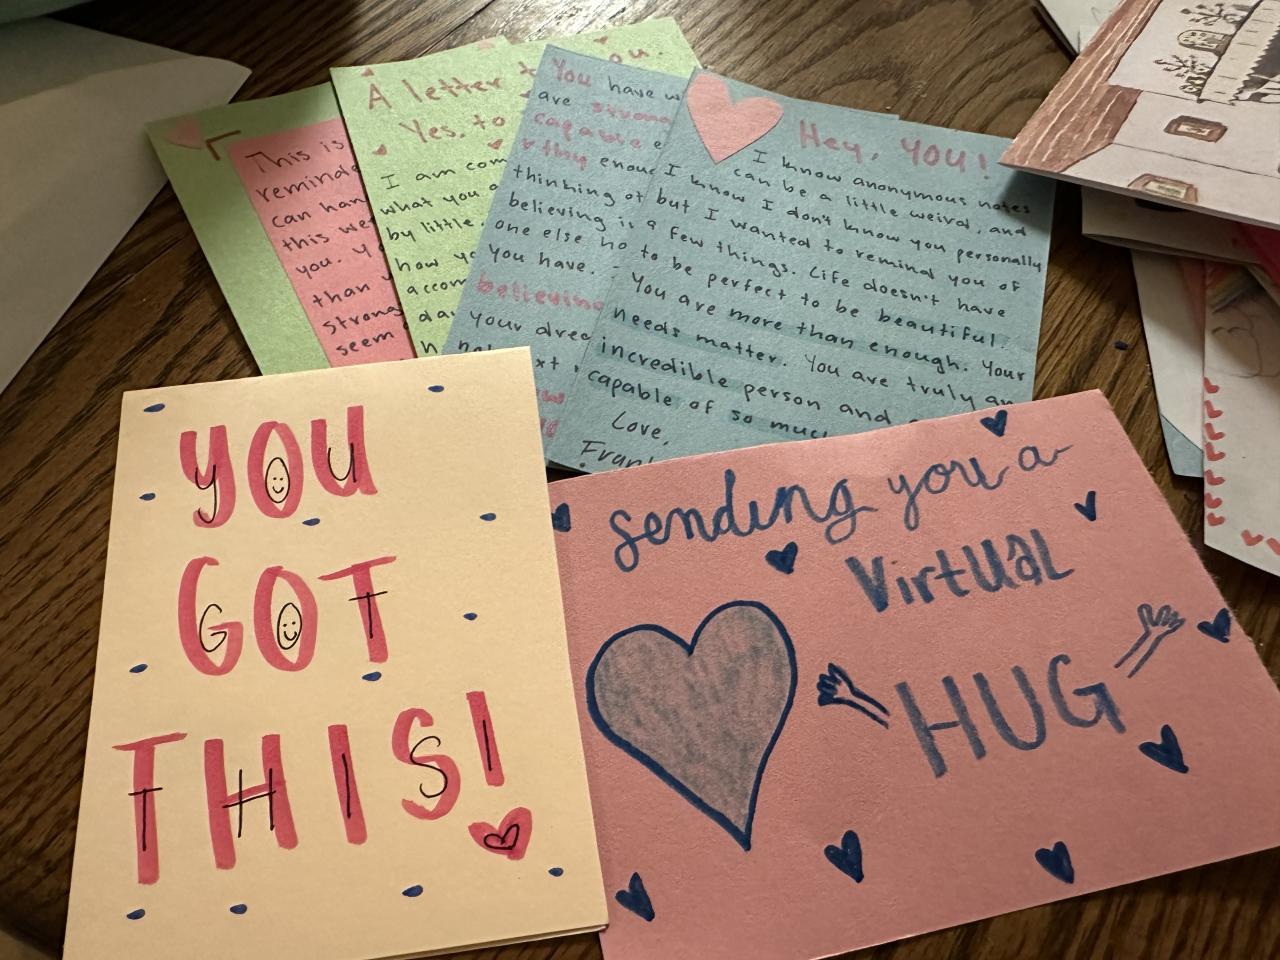 This is
reminde
can han
this we
you. Y
than
strong
seem
A letter t you.
Yes, to
I am com
what you a
by little.
how yo
accom
da
h
You have w
are strong
capable e
thy enou
thinking of
believing i
one else ho
you have.
believing
your drea
xt
Hey, YOU!
I know anonymous notes
can be a little weird, and
I know I don't know you personally
but I wanted to remind you of
a few things. Life doesn't have
to be perfect to be beautiful.
You are more than enough. Your
needs matter. You are truly an
incredible person and
capable of so much
Love,
Frank
YOU
GOT
THIS!
sending you a
Virtual
HUG